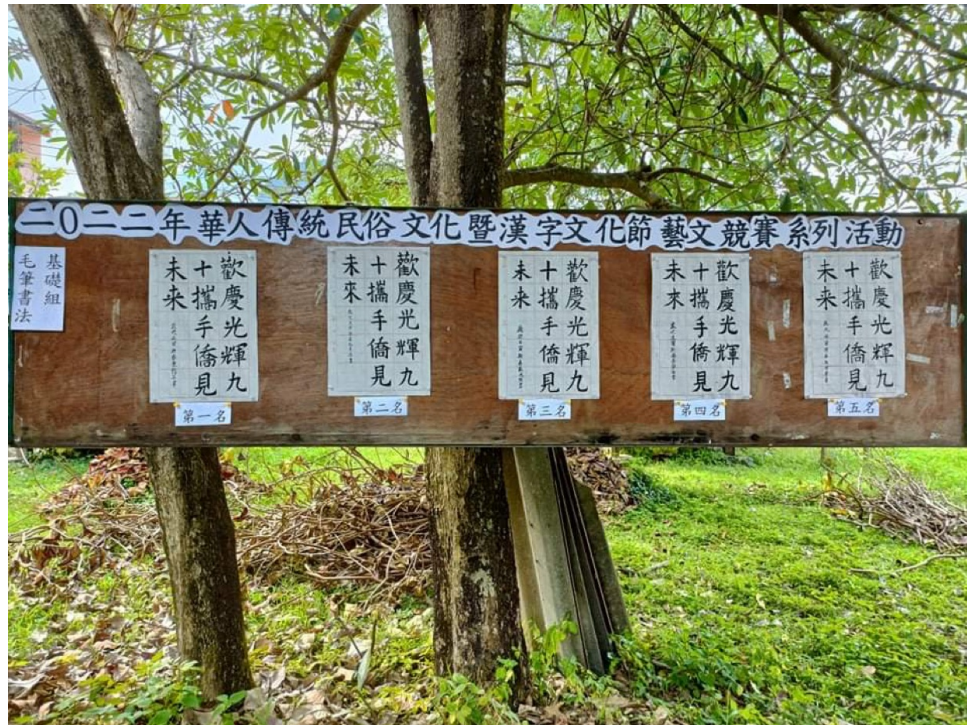 二０二二年華人傳統民俗文化暨漢字文化節藝文競賽系列活動
基礎組
毛筆書法
歡慶光輝九
十攜手僑見
未来
第一名
歡慶光輝九
十攜手僑見
未來
第二名
歡慶光輝九
十攜手僑見
未来
第三名
歡慶光輝九
十攜手僑見
未來
第四名
歡慶光輝九
十攜手僑見
未来
第五名